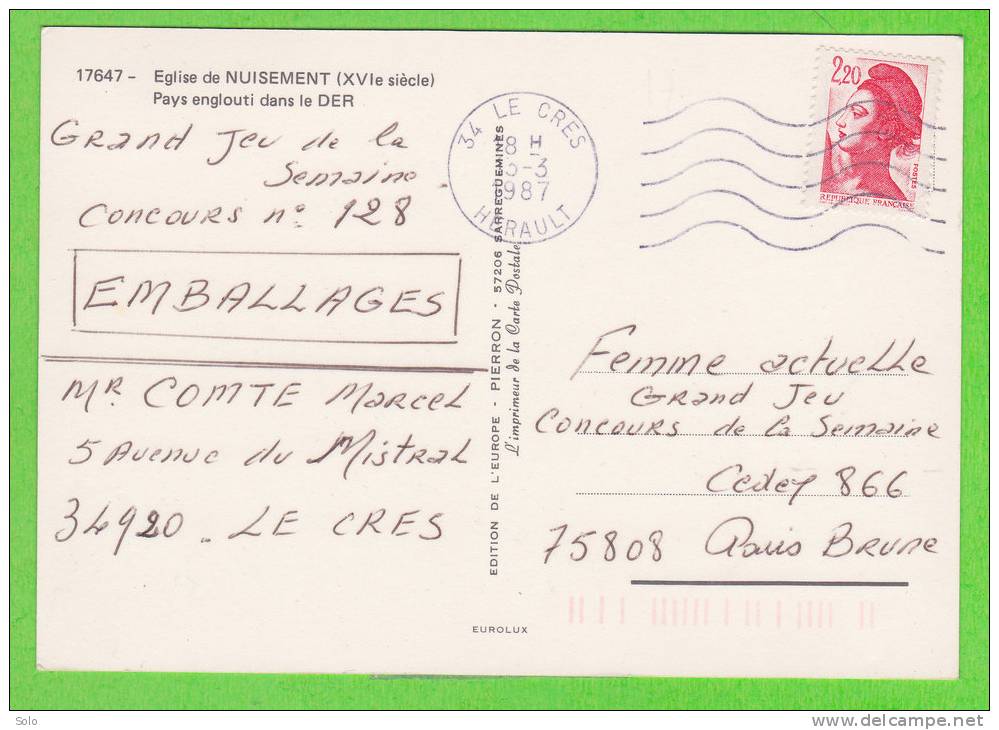 17647 - Eglise de NUISEMENT (XVIe siècle)
Pays englouti dans le DER
GRAND JEU de la
Semaine.
CONCOURS n° 128
EMBALLAGES
MR. COMTE Marcel
5 Avenue du Mistral
34920. LE CRES
34 LE CRES
8 H
-3
1987
HERAULT
EDITION DE L'EUROPE - PIERRON - 57206 SARREGUEMINES
L'imprimeur de la Carte Postale
EUROLUX
2,20
POSTES
REPUBLIQUE FRANÇAISE
Femme actuelle
GRAND JEU
CONCOURS de la Semaine
Cedex 866
75808 Paris BRUNE
Solo
www.delcampe.net